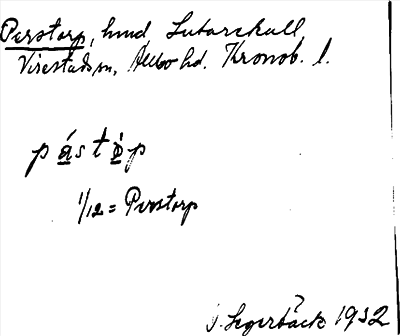 Perstorp, hmd Lutarskull,
Virestads sn, Allbo hd. Kronob. l.
pástòp
1/12 = Perstorp
J. Segerbäck 1932